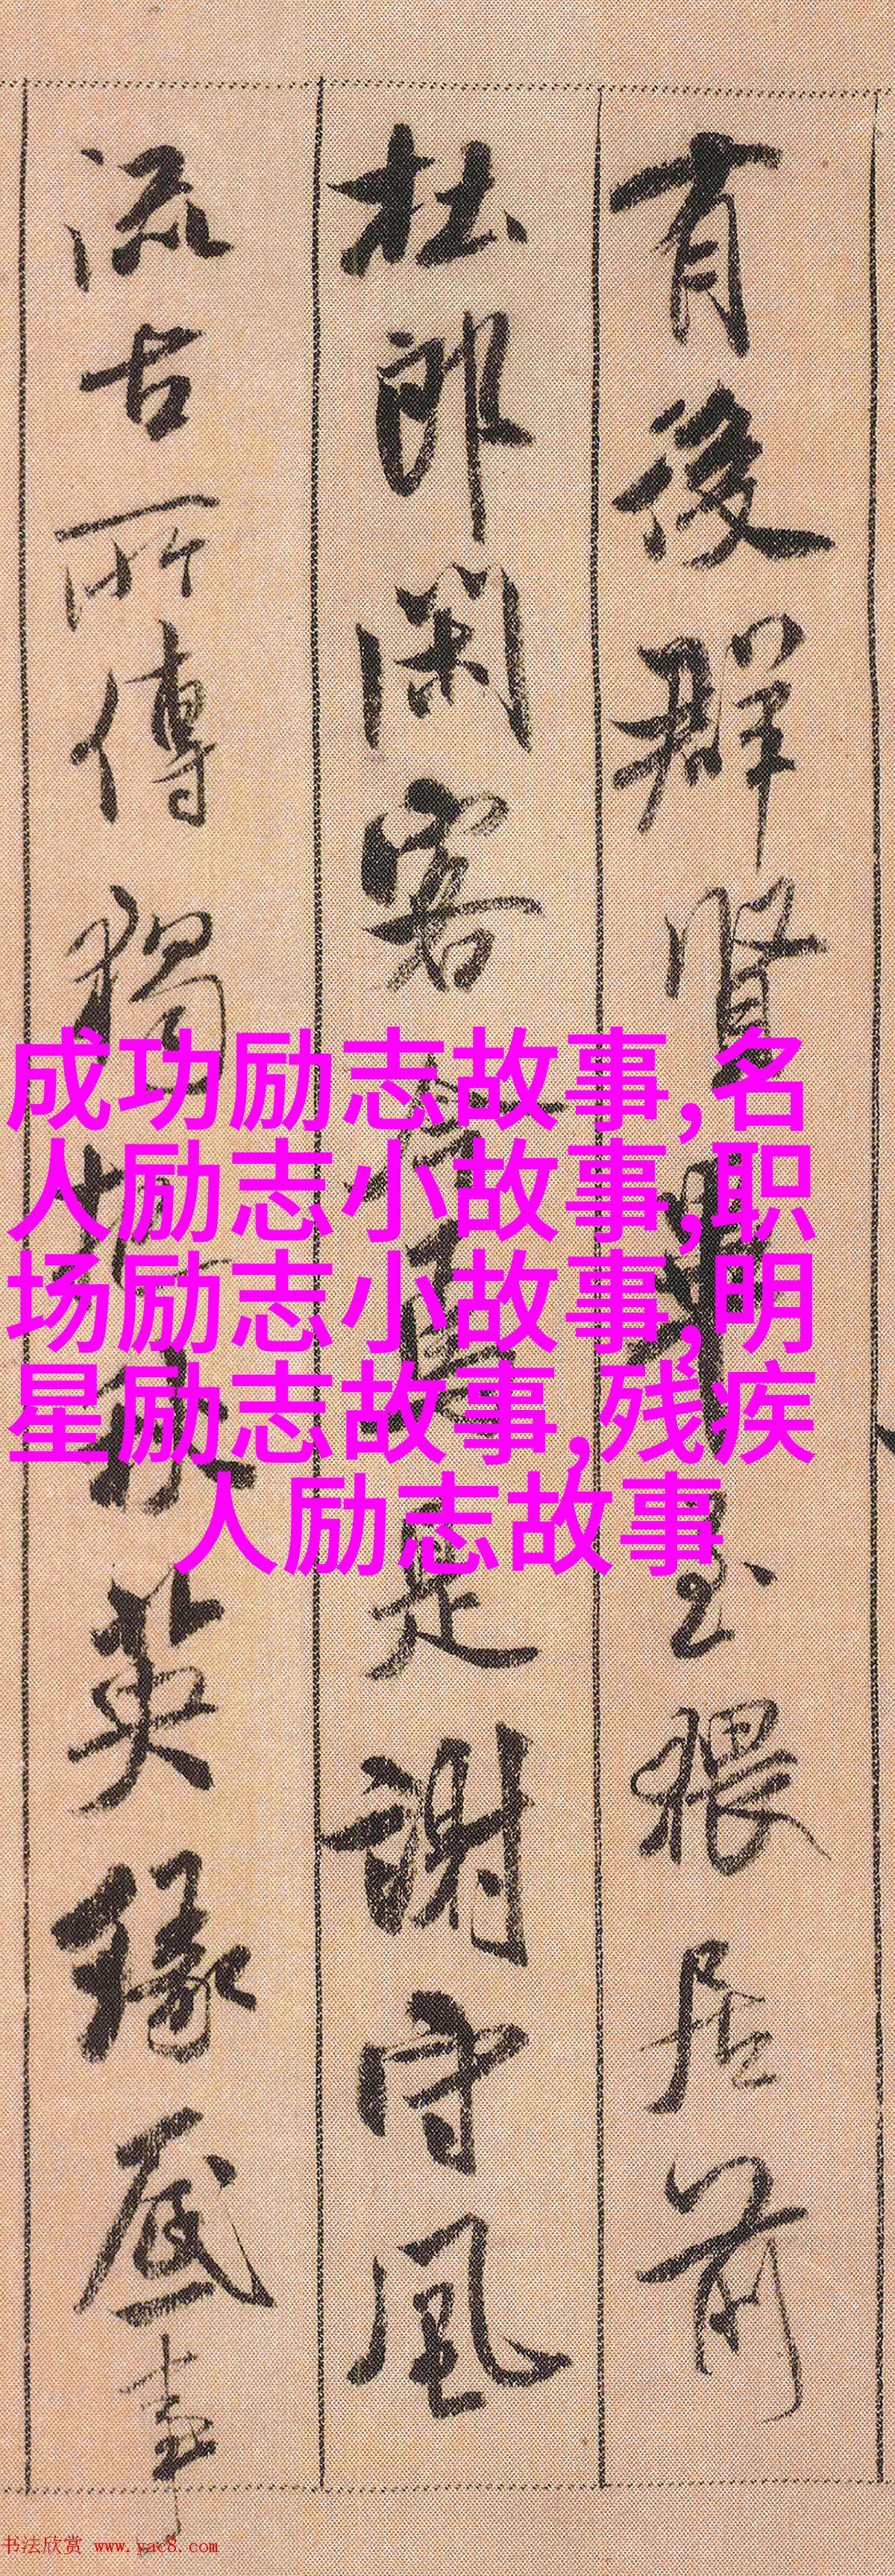 有後群賢畢至猥居前
杜郎闲客是謝守風
流古所傳獨把秋英緣底事
成功励志故事,名
人励志小故事,职
场励志小故事,明
星励志故事,残疾
人励志故事
书法欣赏 www.yac8.com